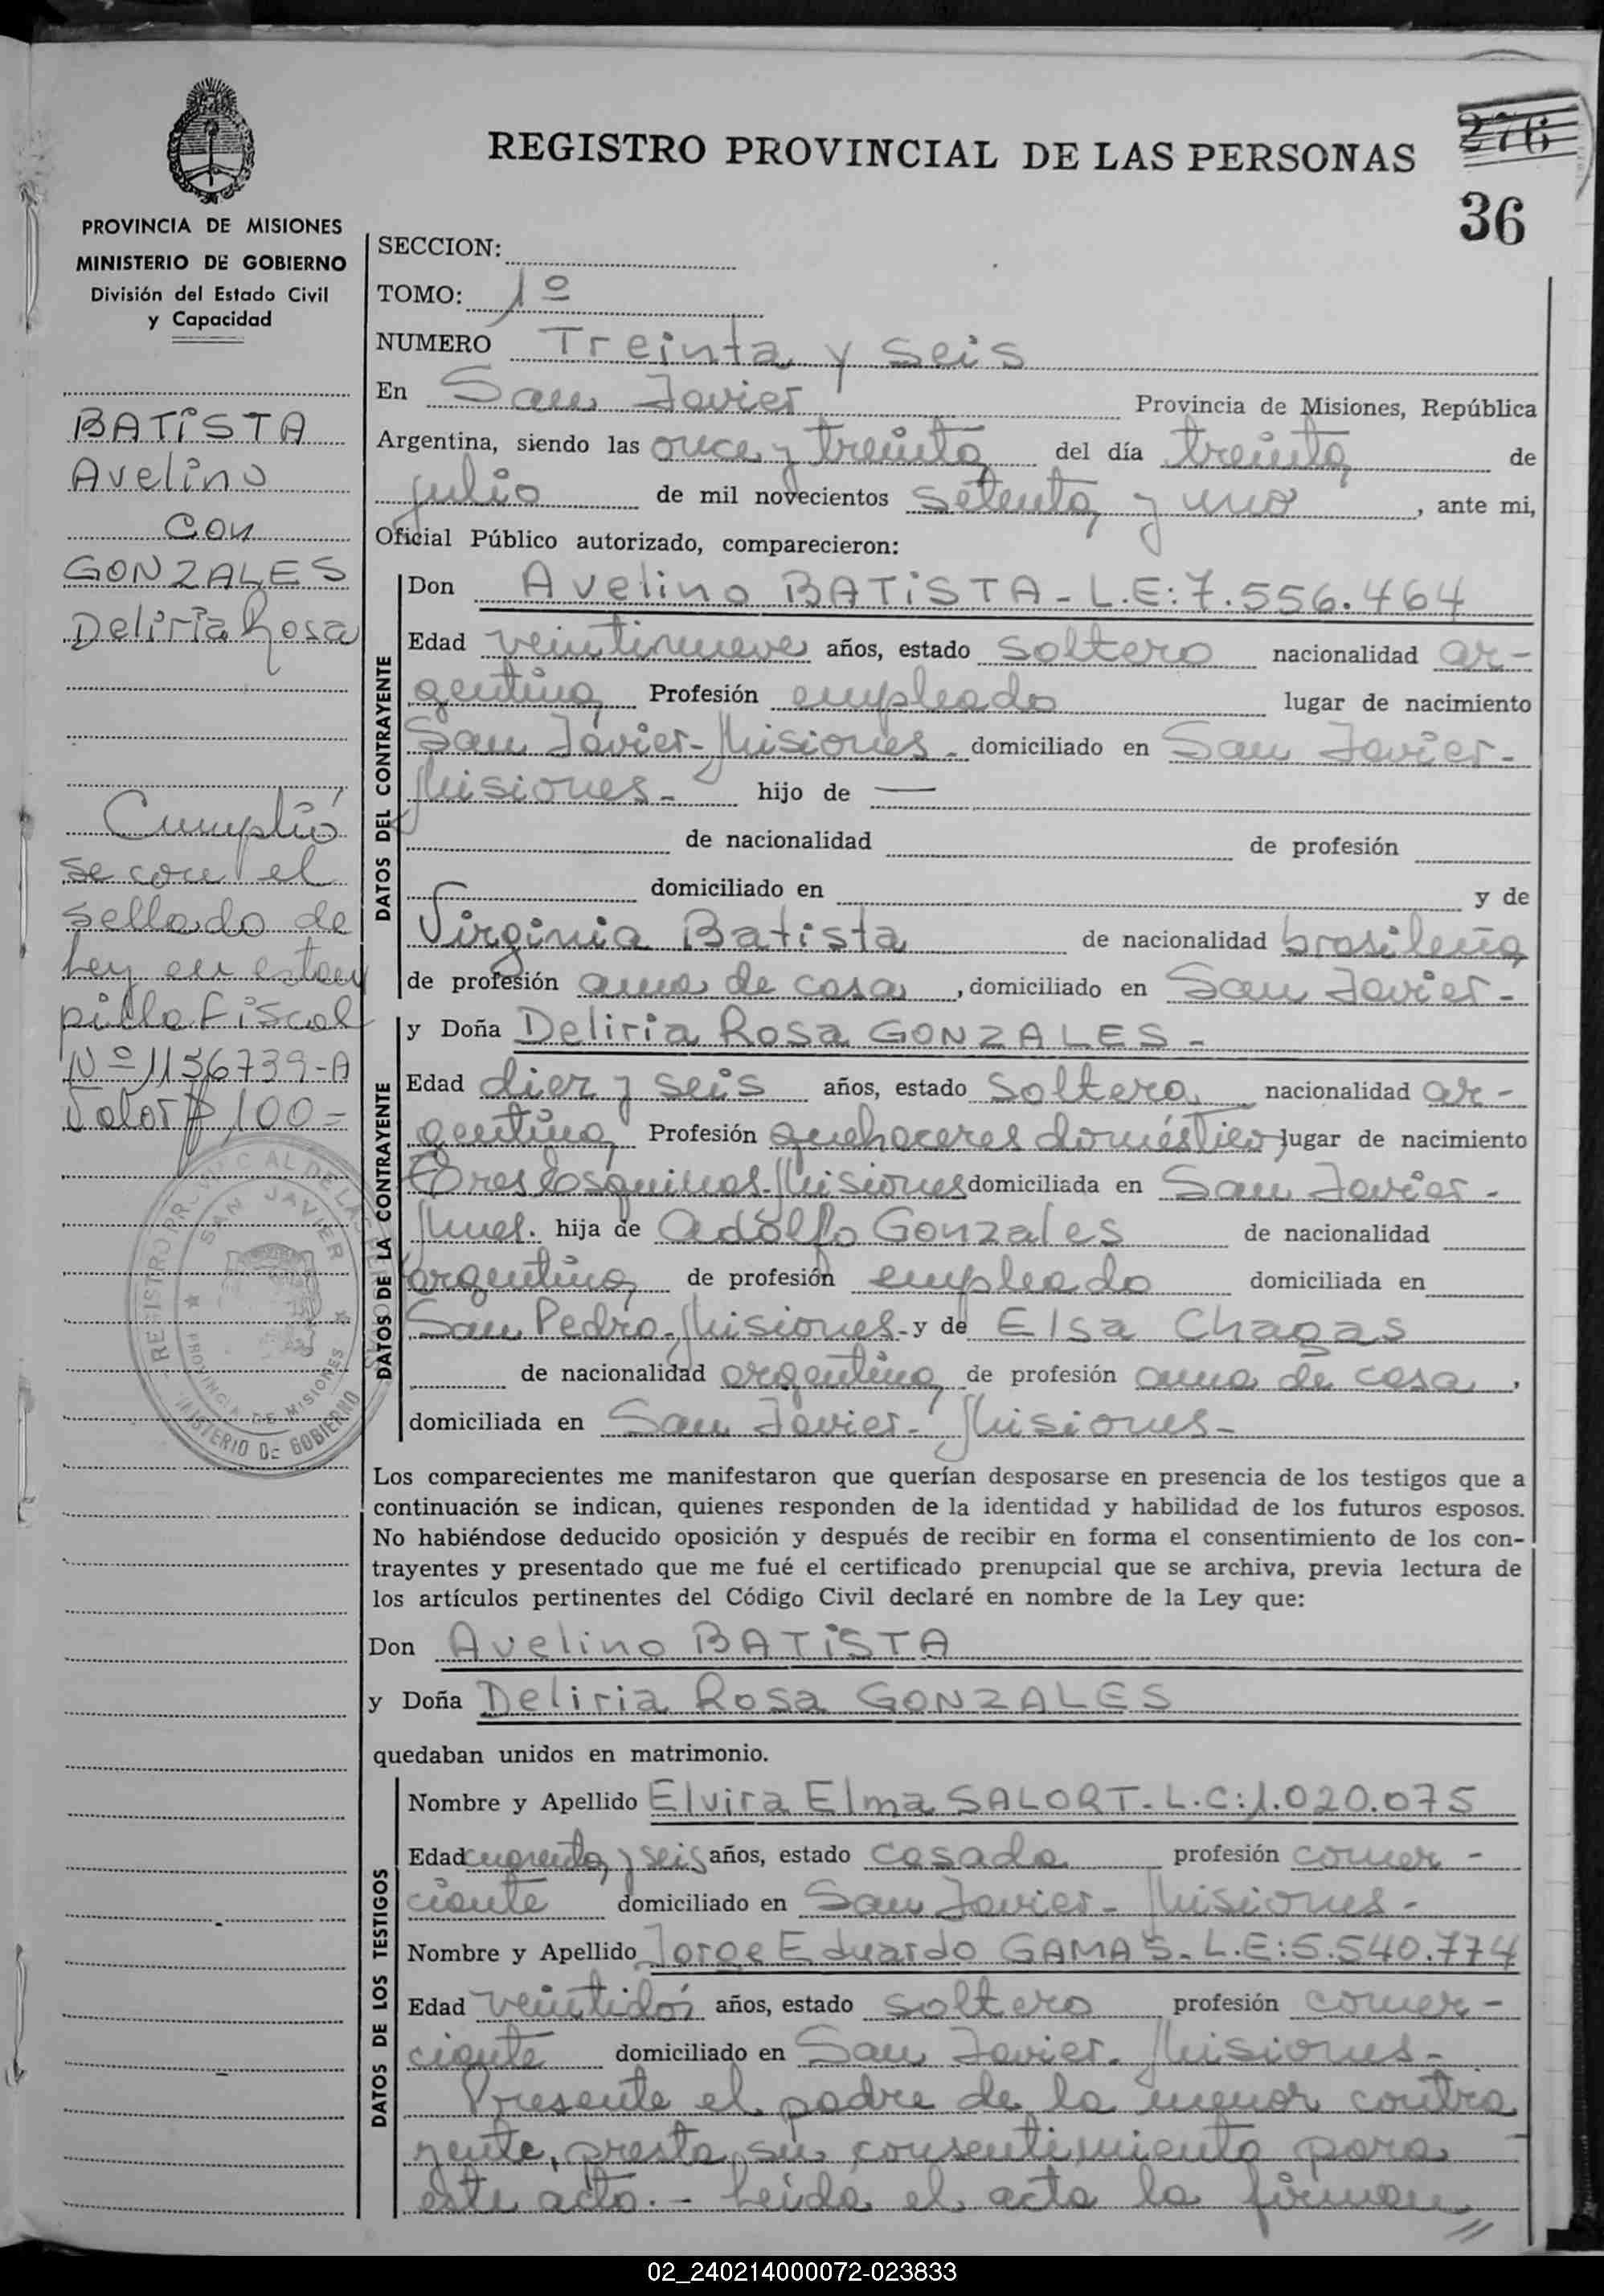 REGISTRO PROVINCIAL DE LAS PERSONAS
276
36
PROVINCIA DE MISIONES
MINISTERIO DE GOBIERNO
División del Estado Civil
y Capacidad
BATISTA
Avelino
con
GONZALES
Deliria Rosa
Cumplió
se con el
sellado de
Ley en estam
pilla Fiscal
Nº 1136739-A
Valor $ 100=
REGISTRO PROVINCIAL DE LAS PERSONAS
SAN JAVIER
PROVINCIA DE MISIONES
MINISTERIO DE GOBIERNO
SECCION:
TOMO: 1º
NUMERO Treinta y seis
En San Javier Provincia de Misiones, República
Argentina, siendo las once y treinta del día treinta de
julio de mil novecientos setenta y uno, ante mi,
Oficial Público autorizado, comparecieron:
DATOS DEL CONTRAYENTE
Don Avelino BATISTA - L.E: 7.556.464
Edad veintinueve años, estado soltero nacionalidad ar-
gentina Profesión empleado lugar de nacimiento
San Javier - Misiones - domiciliado en San Javier -
Misiones - hijo de —
de nacionalidad de profesión
domiciliado en y de
Virginia Batista de nacionalidad brasileña
de profesión ama de casa, domiciliado en San Javier -
DATOS DE LA CONTRAYENTE
y Doña Deliria Rosa GONZALES -
Edad diez y seis años, estado soltera nacionalidad ar-
gentina Profesión quehaceres doméstico lugar de nacimiento
Tres Esquinas - Misiones domiciliada en San Javier -
Mnes. hija de Adolfo Gonzales de nacionalidad
argentina de profesión empleado domiciliada en
San Pedro - Misiones - y de Elsa Chagas
de nacionalidad argentina de profesión ama de casa,
domiciliada en San Javier - Misiones -
Los comparecientes me manifestaron que querían desposarse en presencia de los testigos que a
continuación se indican, quienes responden de la identidad y habilidad de los futuros esposos.
No habiéndose deducido oposición y después de recibir en forma el consentimiento de los con-
trayentes y presentado que me fué el certificado prenupcial que se archiva, previa lectura de
los artículos pertinentes del Código Civil declaré en nombre de la Ley que:
Don Avelino BATISTA
y Doña Deliria Rosa GONZALES
quedaban unidos en matrimonio.
DATOS DE LOS TESTIGOS
Nombre y Apellido Elvira Elma SALORT - L.C: 1.020.075
Edad cuarenta y seis años, estado casada profesión comer-
ciante domiciliado en San Javier - Misiones -
Nombre y Apellido Jorge Eduardo GAMAS - L.E: 5.540.774
Edad veintidós años, estado soltero profesión comer-
ciante domiciliado en San Javier - Misiones -
Presente el padre de la menor contra
yente, presta su consentimiento para
este acto. - Leida el acta la firman
02_240214000072-023833